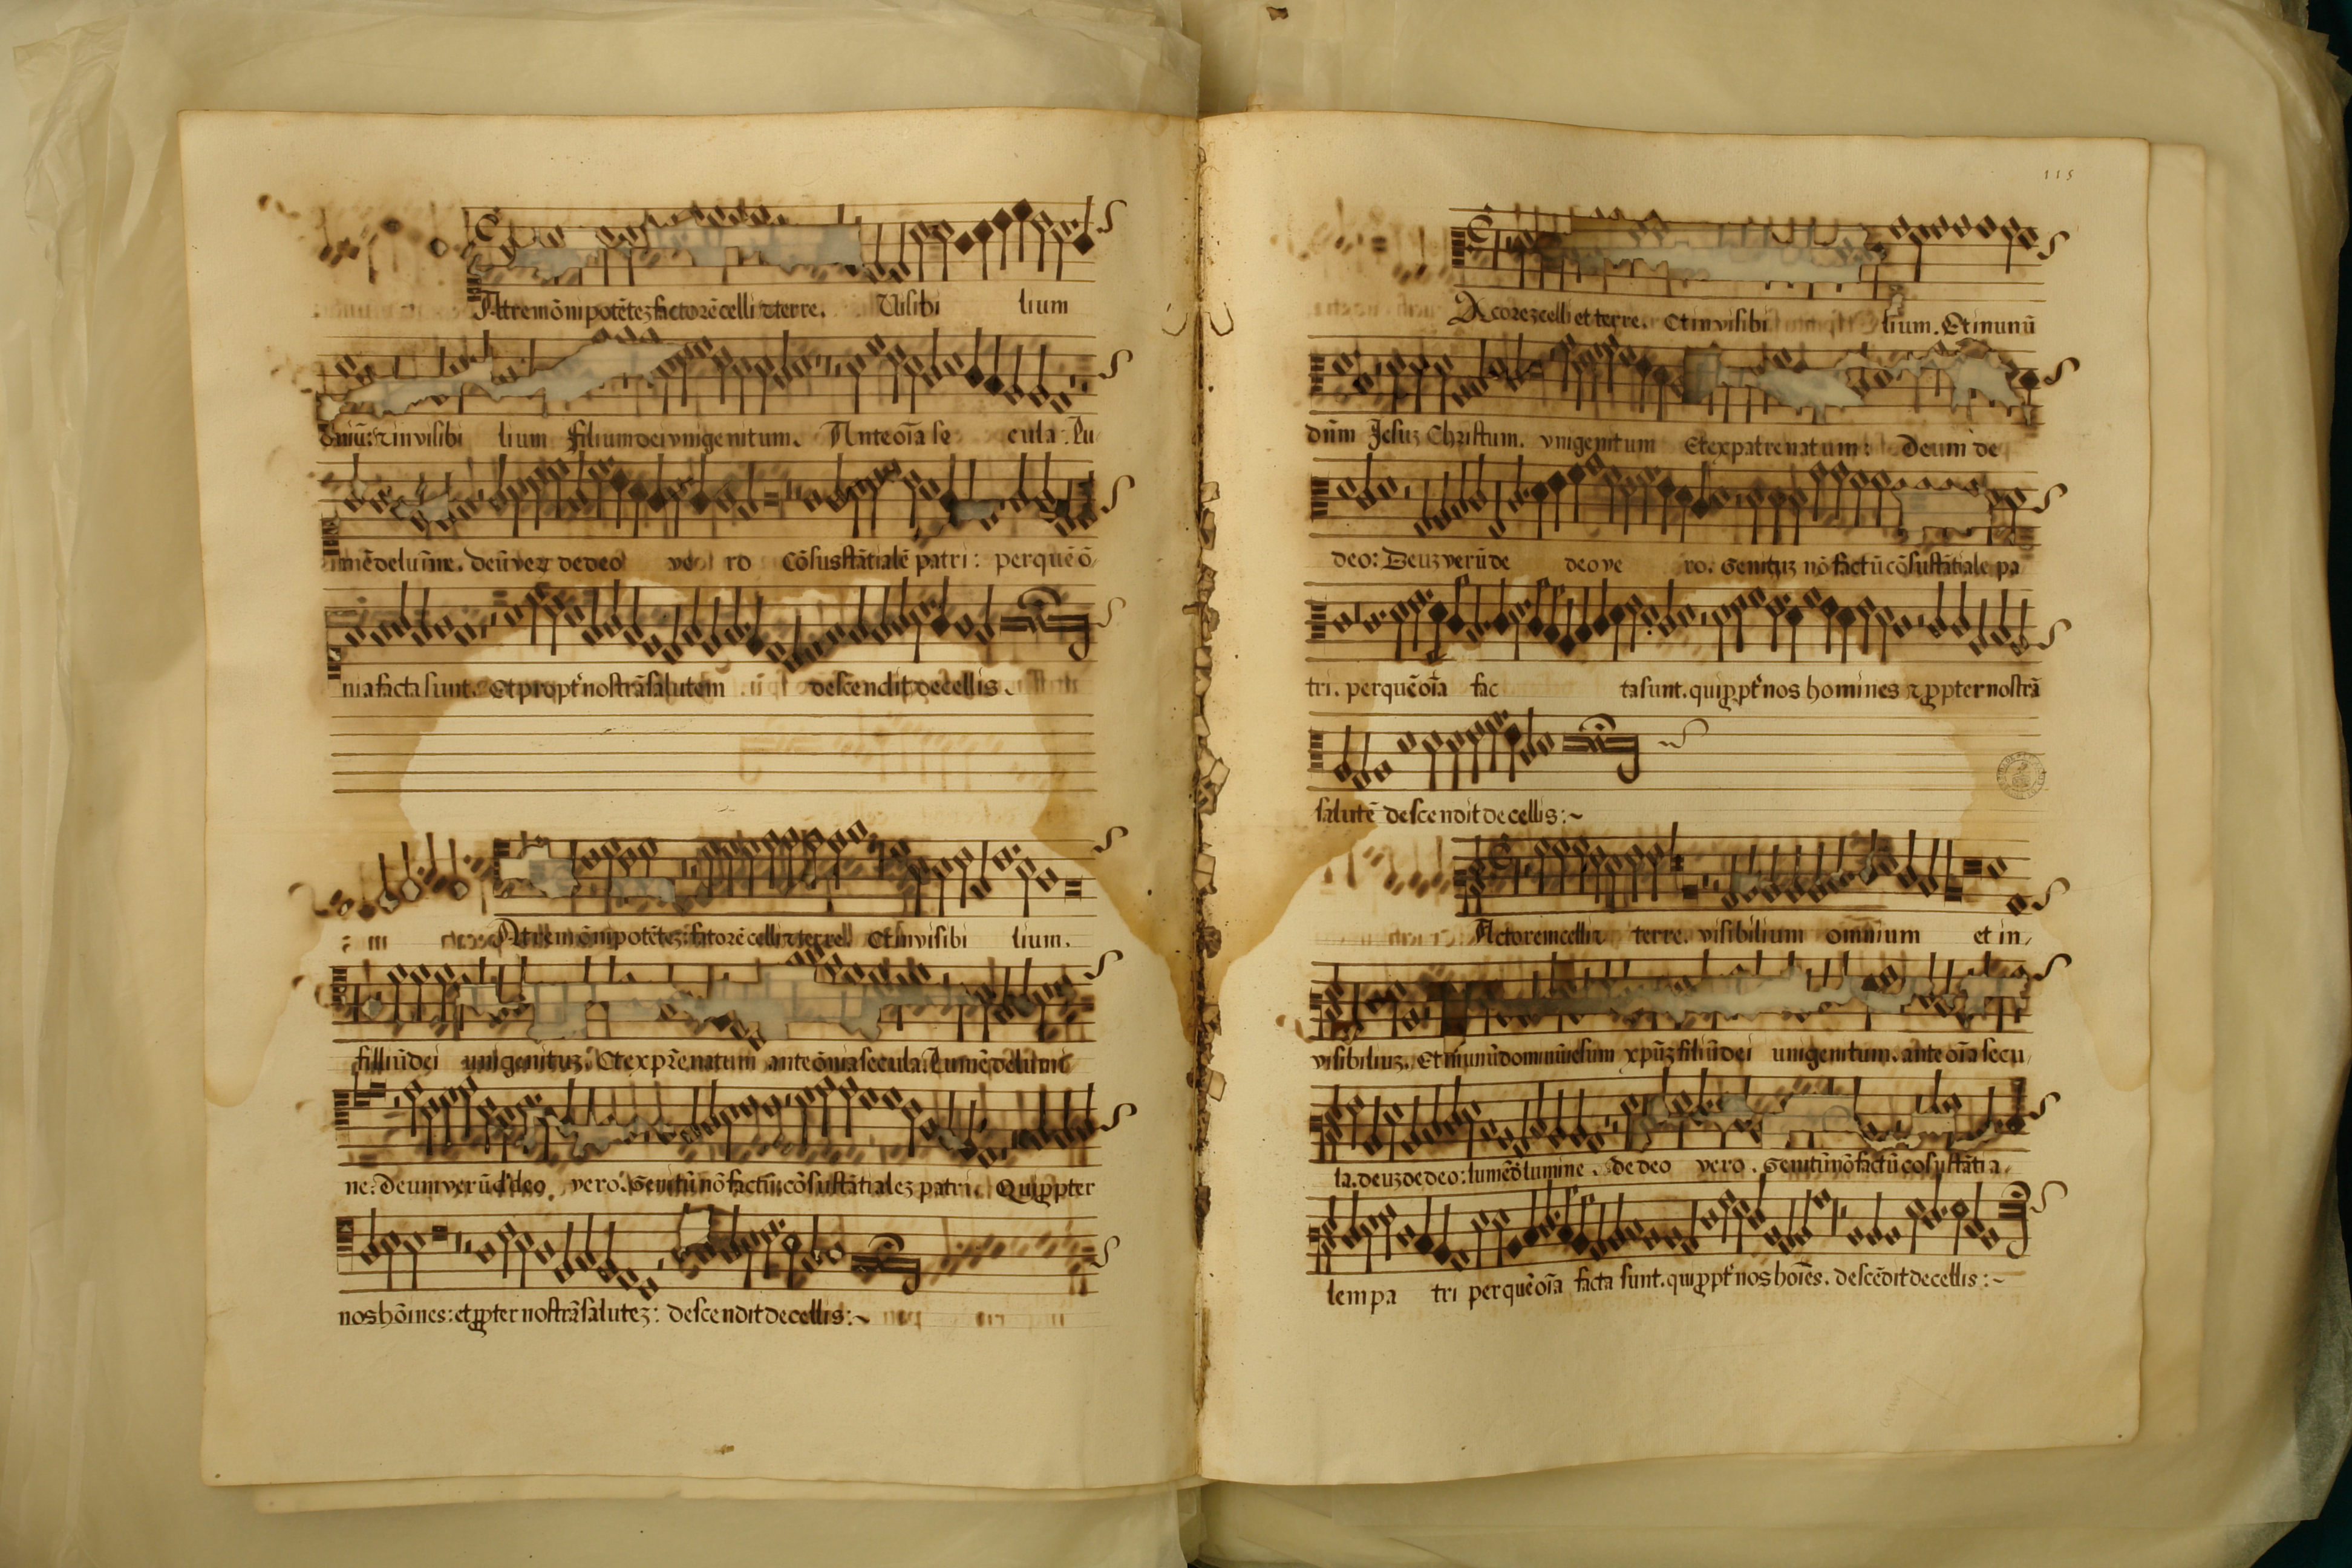 Atrem õnipotẽtez factorẽ celli ⁊ terre. Visibi lium
õniũ: ⁊ invisibi lium filium dei vnigenitum. Ante oĩa se cula. Lu
mẽ de lumĩne. deũ vez de deo ve ro Cõsustãtialẽ patri: per quẽ õ
nia facta sunt. Et propt' nostrã salutem descendit de cellis.
Atrem õnipotẽtez: fatorẽ celli ⁊ terre. Et invisibi lium.
filliũ dei unigenituz. Et ex pr̃e natum ante õnia secula: Lumẽ de lumi
ne: Deum verũ d' deo. vero. Genitũ nõ factũ: cõsustãtialez patri. Qui ꝓpter
nos hõines: et ꝓpter nostrã salutez: descendit de cellis:~
115
Acorez celli et terre. Et invisibi lium. Et in unũ
dñm Jesuz Christum. vnigenitum Et ex patre natum: Deum de
deo: Deuz verũ de deo ve ro. Genituz nõ factũ cõsustãtiale pa
tri. per quẽ oĩa fac ta sunt. qui ꝓpt' nos homines ⁊ ꝓpter nostrã
salutẽ descendit de cellis:~
Actorem celli ⁊ terre. visibilium omnium et in
visibiliuz. Et in unũ dominũ iesum xpũz filiũ dei unigenitum. ante oĩa secu
la. deuz de deo: lumẽ d' lumine. de deo vero. Genitũ nõ factũ cosustãtia
lem pa tri per quẽ oĩa facta sunt. qui ꝓpt' nos hoĩes. descẽdit de cellis:~